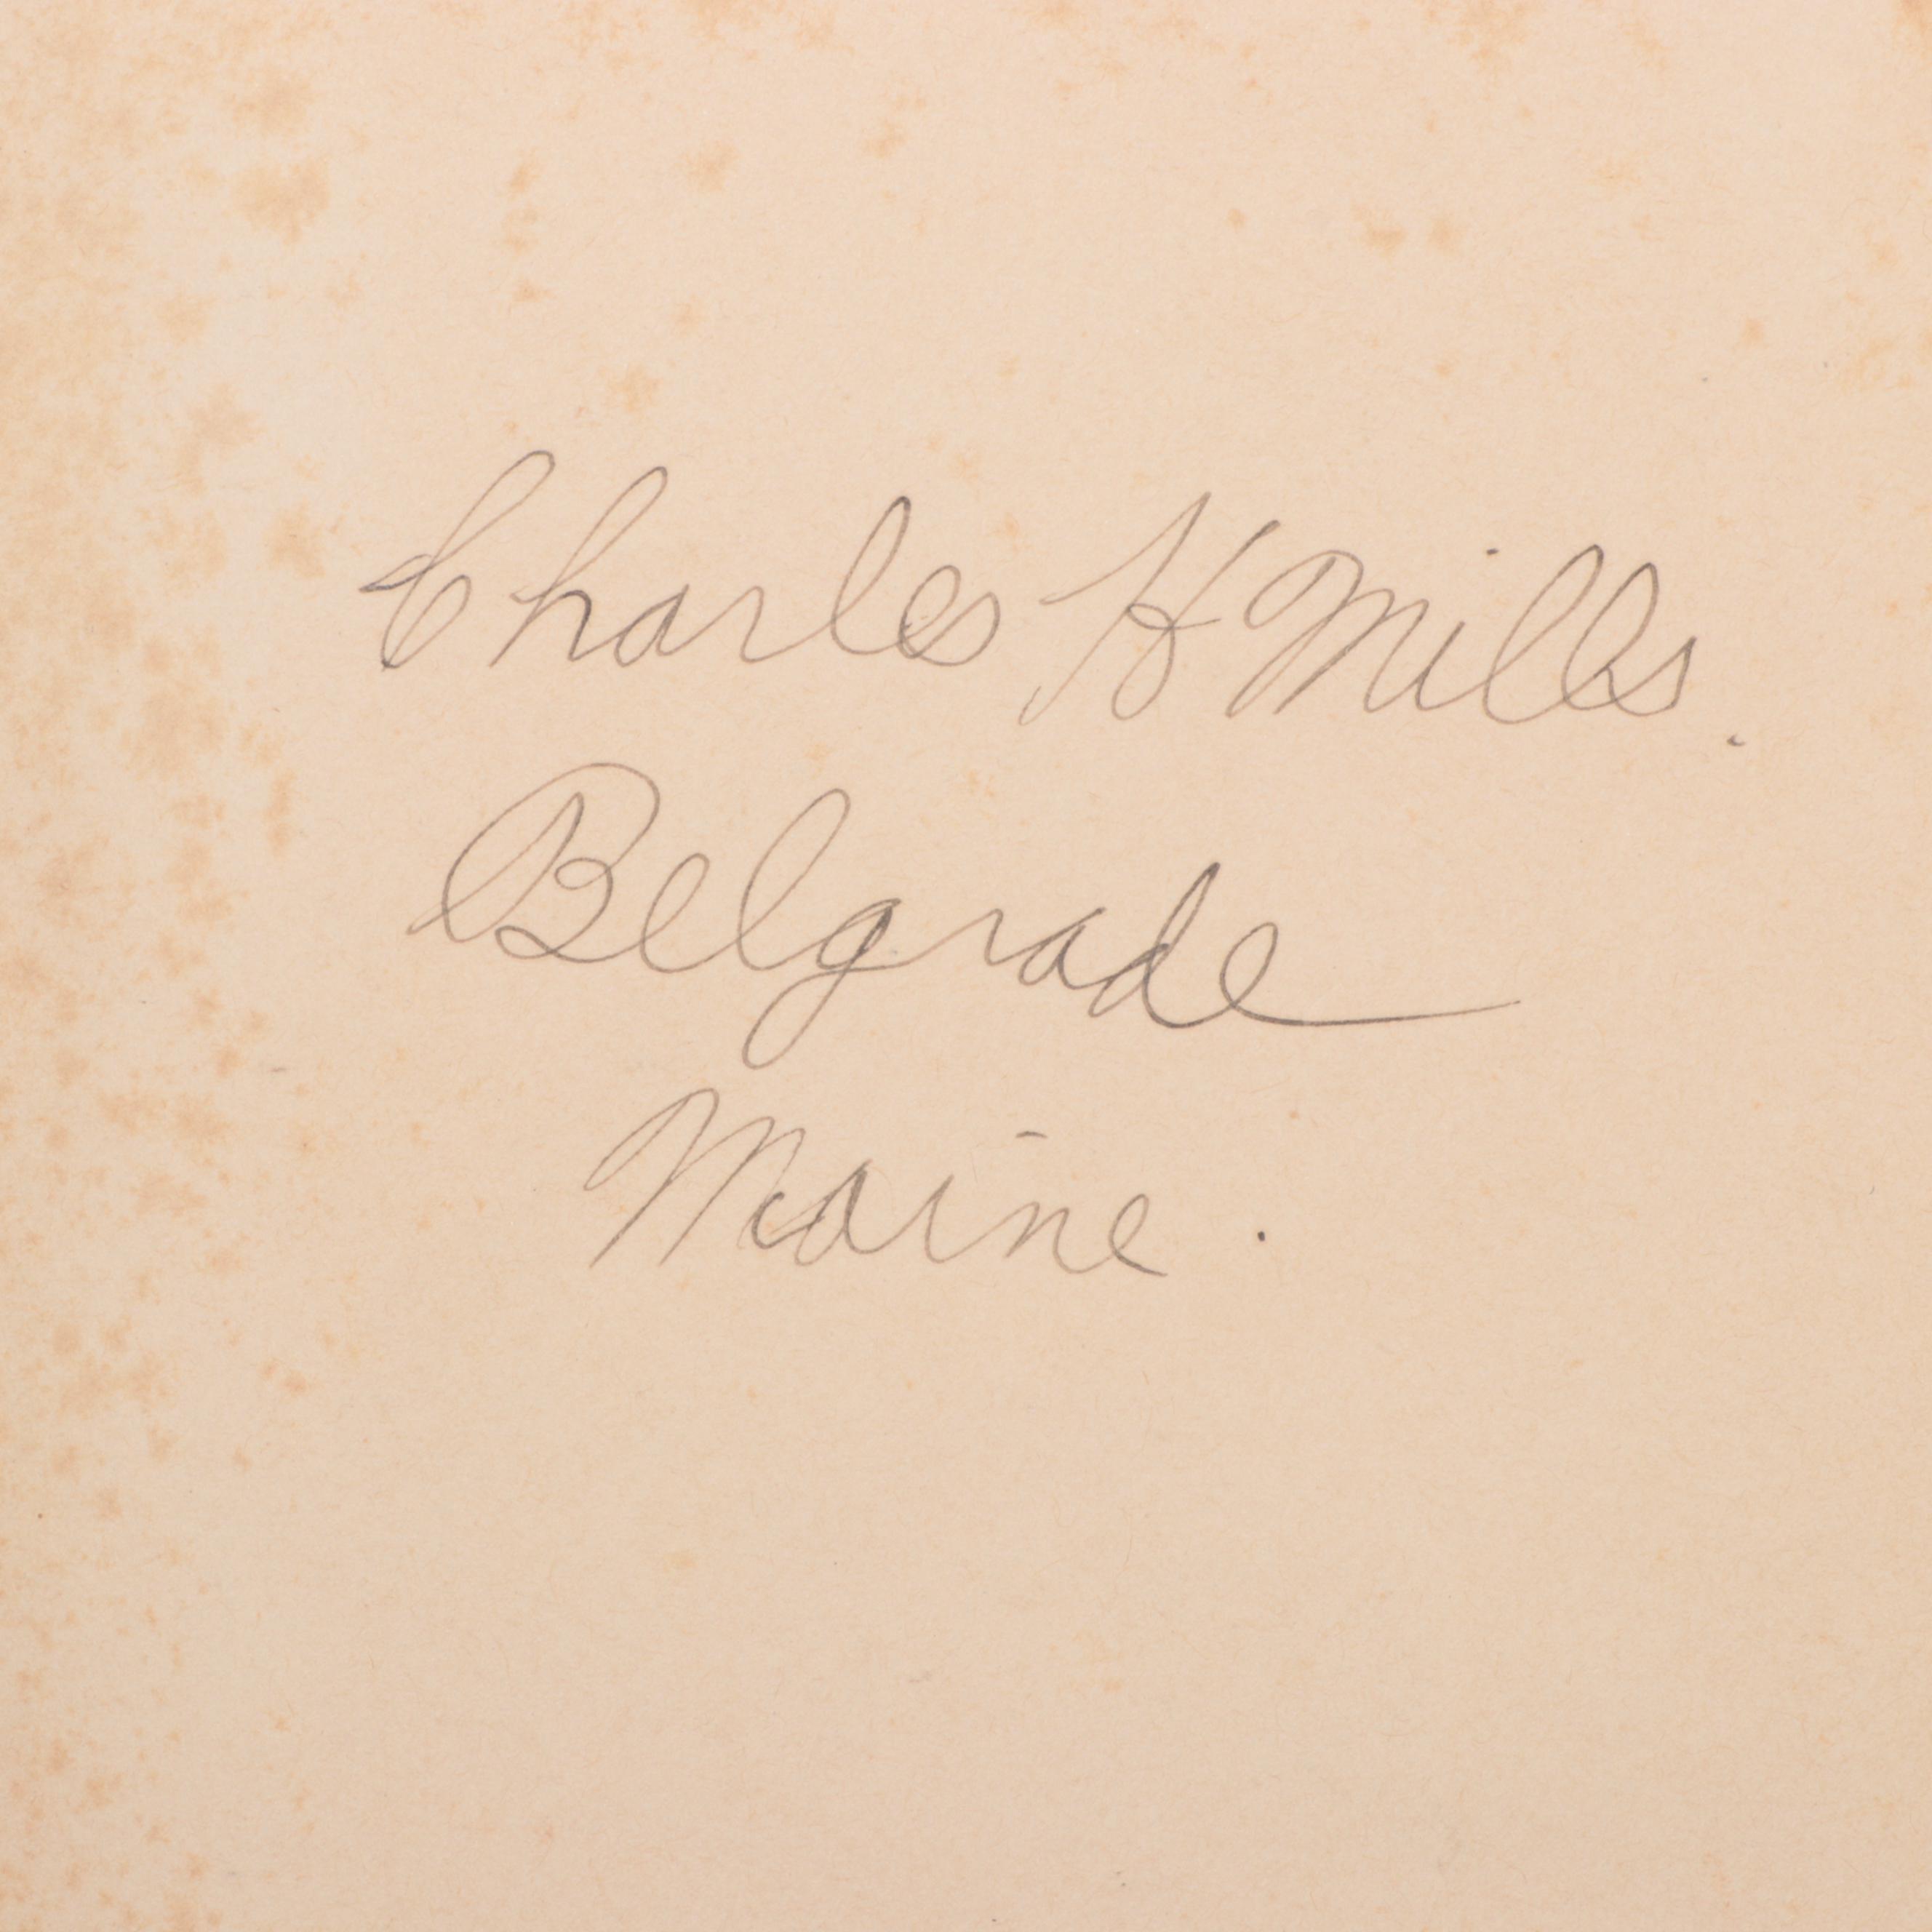 Charles H Mills.
Belgrade
Maine.